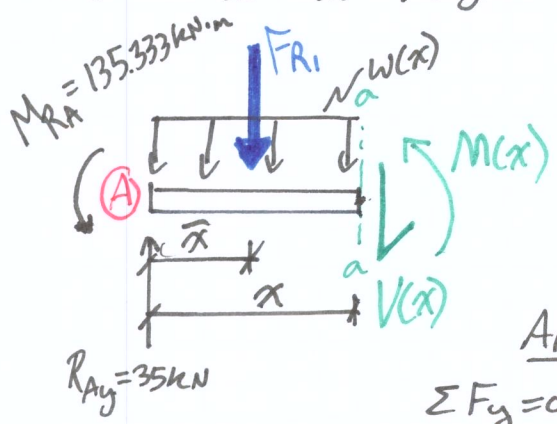 M_RA = 135.333 kN·m
F_R1
w(x)
a
M(x)
A
x̄
a
x
V(x)
R_Ay = 35 kN
ΣFy = 0